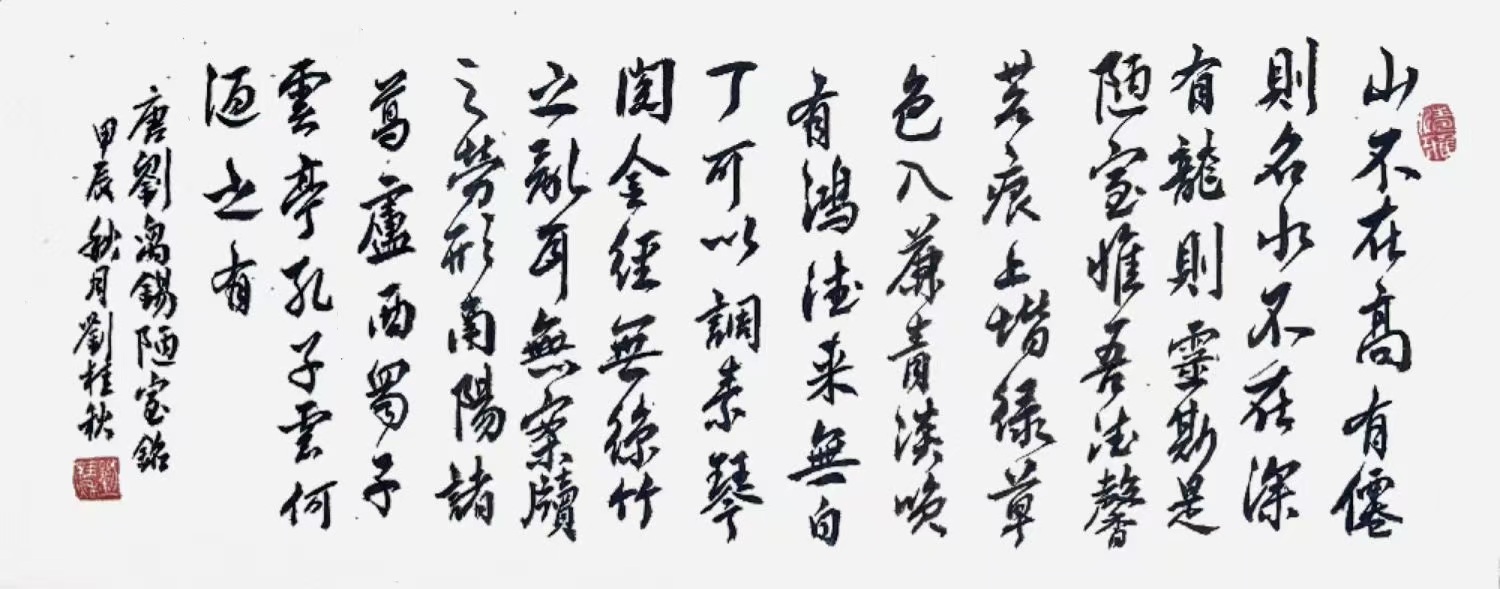 山不在高有僊
則名水不在深
有龍則靈斯是
陋室惟吾德馨
苔痕上堦綠草
色入簾青談咲
有鴻儒来無白
丁可以調素琴
閱金經無絲竹
之亂耳無案牘
之勞形南陽諸
葛廬西蜀子
雲亭孔子雲何
陋之有
唐劉禹錫陋室銘
甲辰秋月劉桂秋